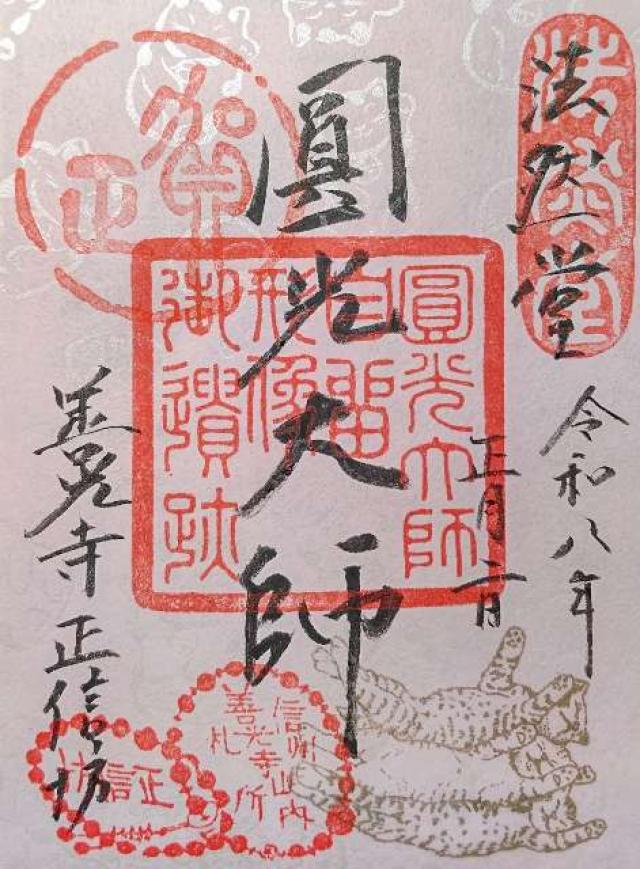 法然堂
令和八年
正月二日
圓光大師
善光寺正信坊
法然堂
賀正
圓光大師
自畱
形像
御遺跡
信州山内
善光寺
札所